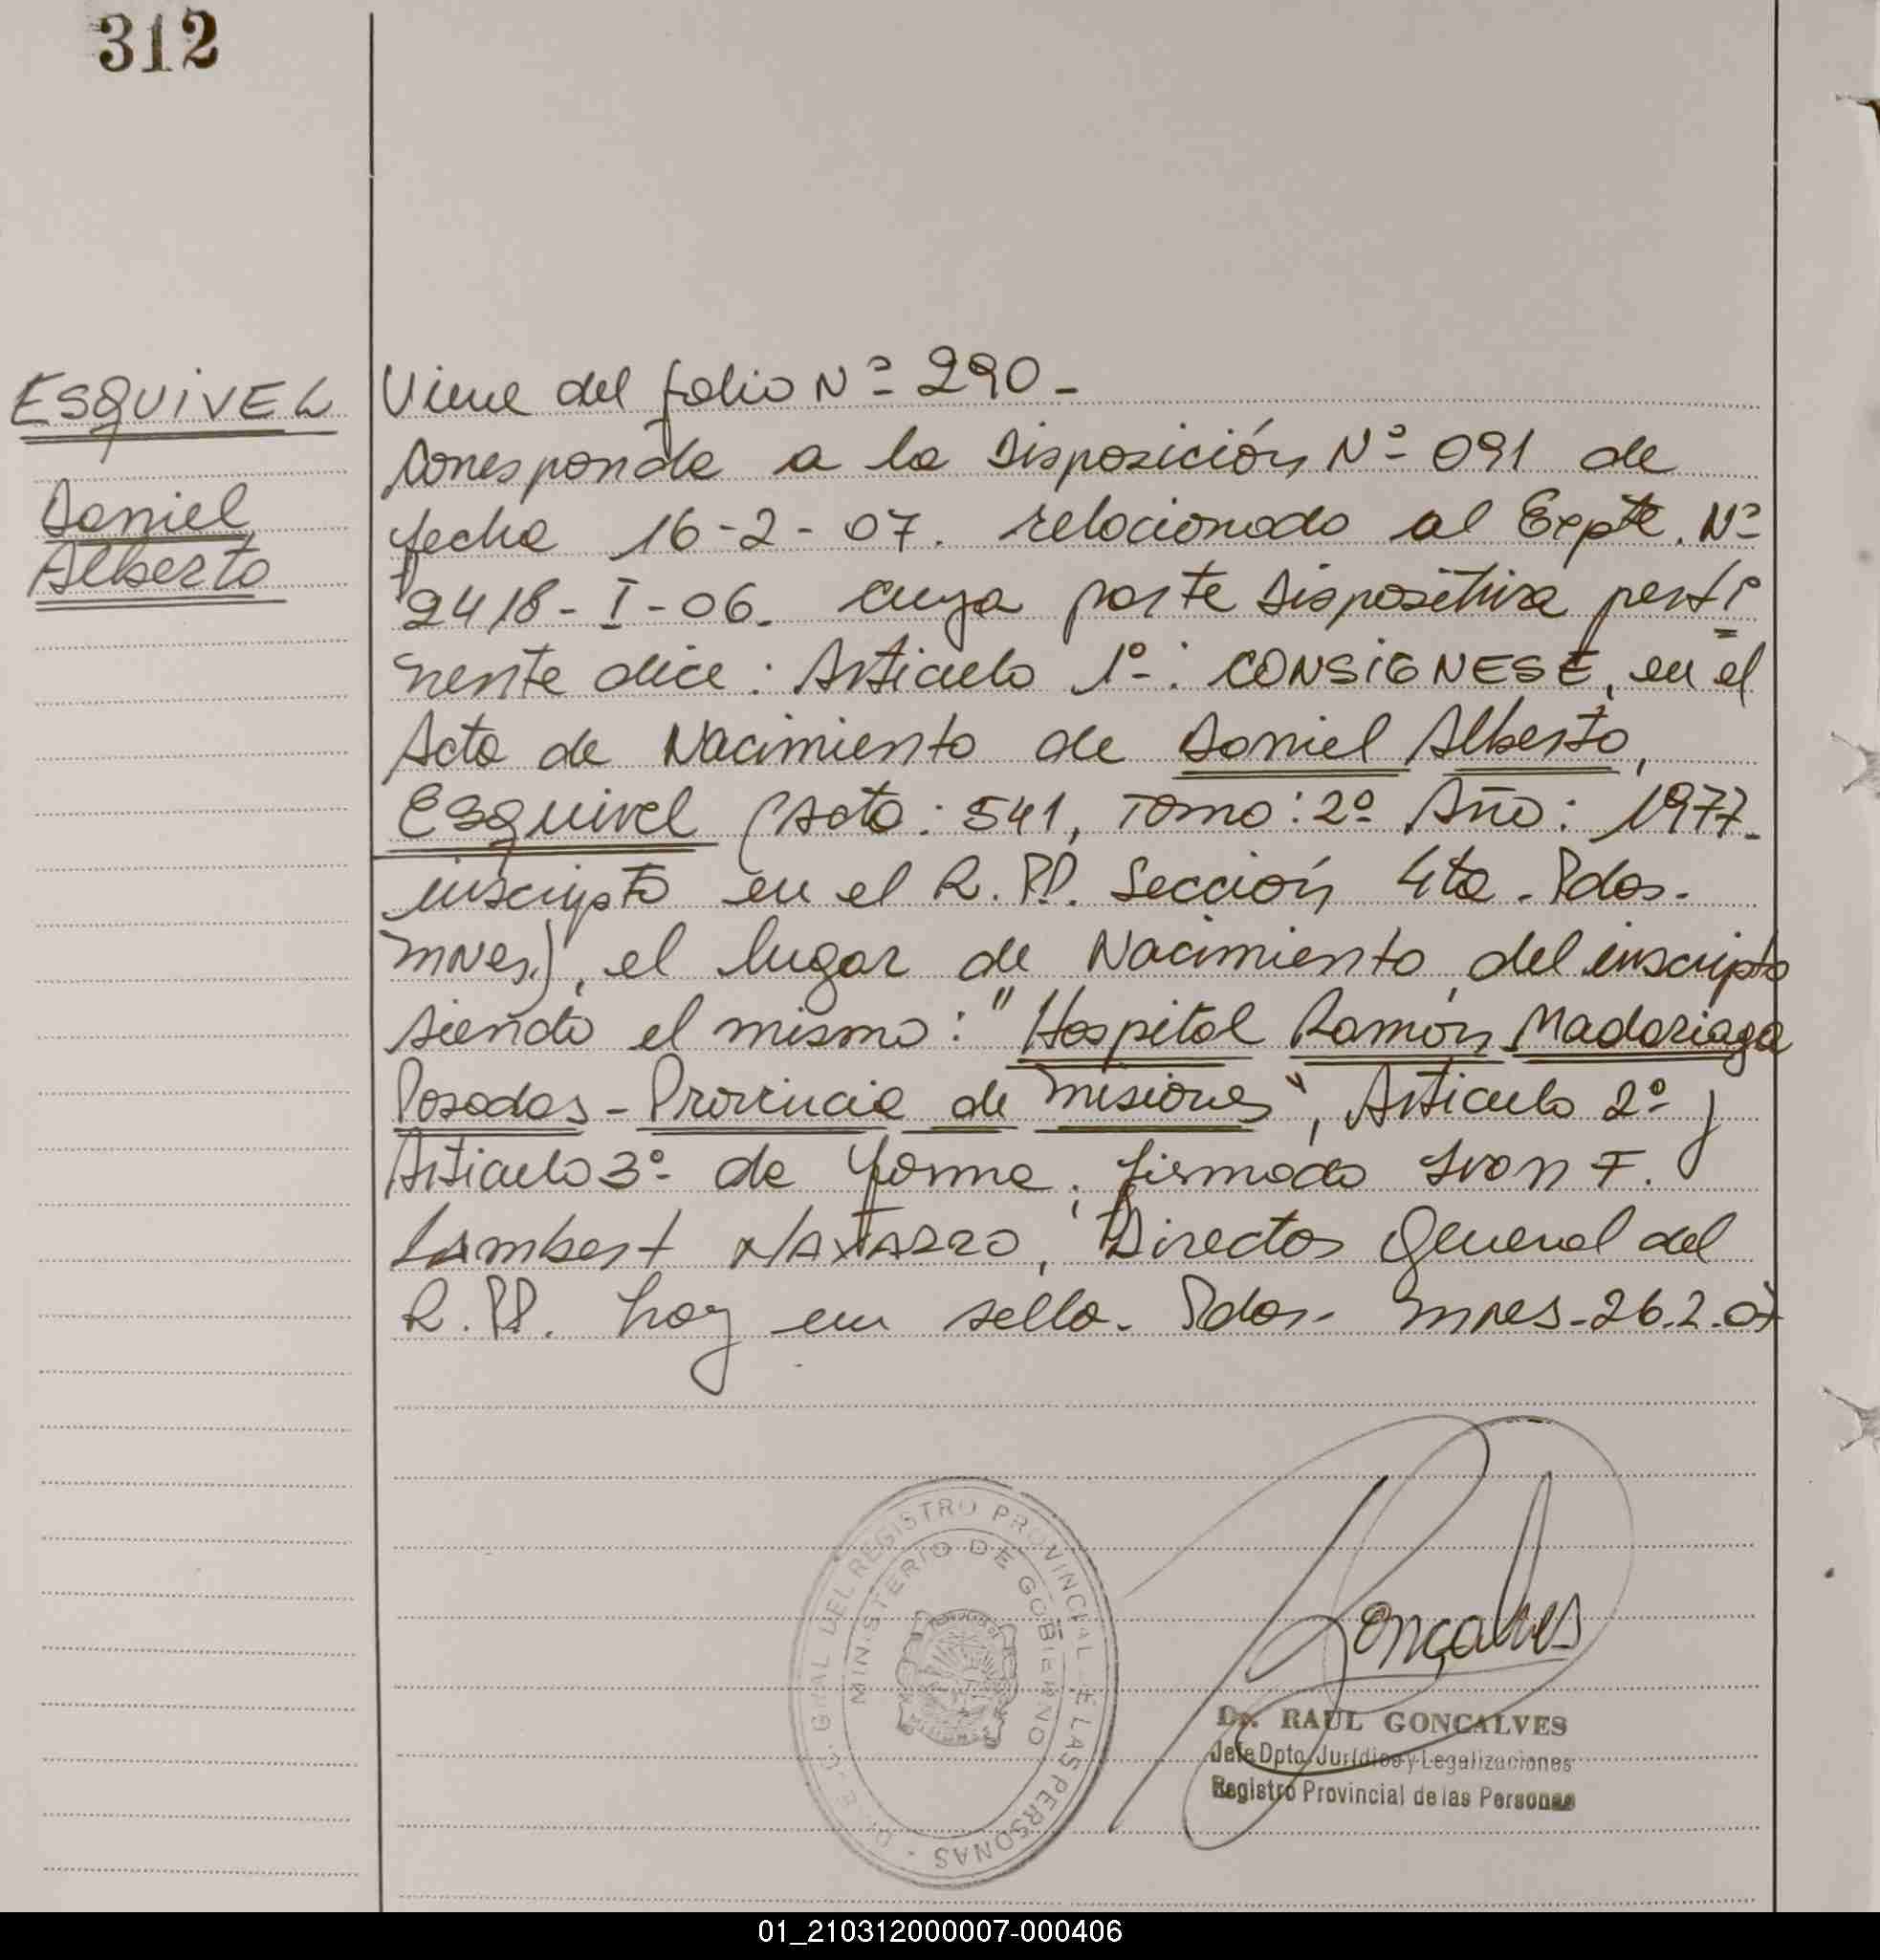 312
ESQUIVEL
Daniel
Alberto
Viene del folio Nº 290-
Corresponde a la Disposición Nº 091 de
fecha 16-2-07. relacionado al Expte. Nº
2418-I-06. cuya parte Dispositiva perti
nente dice: Articulo 1º: CONSIGNESE, en el
Acta de Nacimiento de Daniel Alberto,
Esquivel (Acta: 541, Tomo: 2º Año: 1977-
inscripto en el R.PP. Sección 4ta. Pdas-
Mnes), el lugar de Nacimiento del inscripto
siendo el mismo: "Hospital Ramón Madariaga
Posadas-Provincia de Misiones", Articulo 2º y
Articulo 3º de forma. firmado Ivon F.
Lambert NAVARRO, Director General del
R.PP. hay un sello. Pdas- Mnes-26.2.07
D.E.C. GRAL DEL REGISTRO PROVINCIAL E LAS PERSONAS
MINISTERIO DE GOBIERNO
Goncalves
Dr. RAUL GONCALVES
Jefe Dpto. Jurídico y Legalizaciones
Registro Provincial de las Personas
01_210312000007-000406